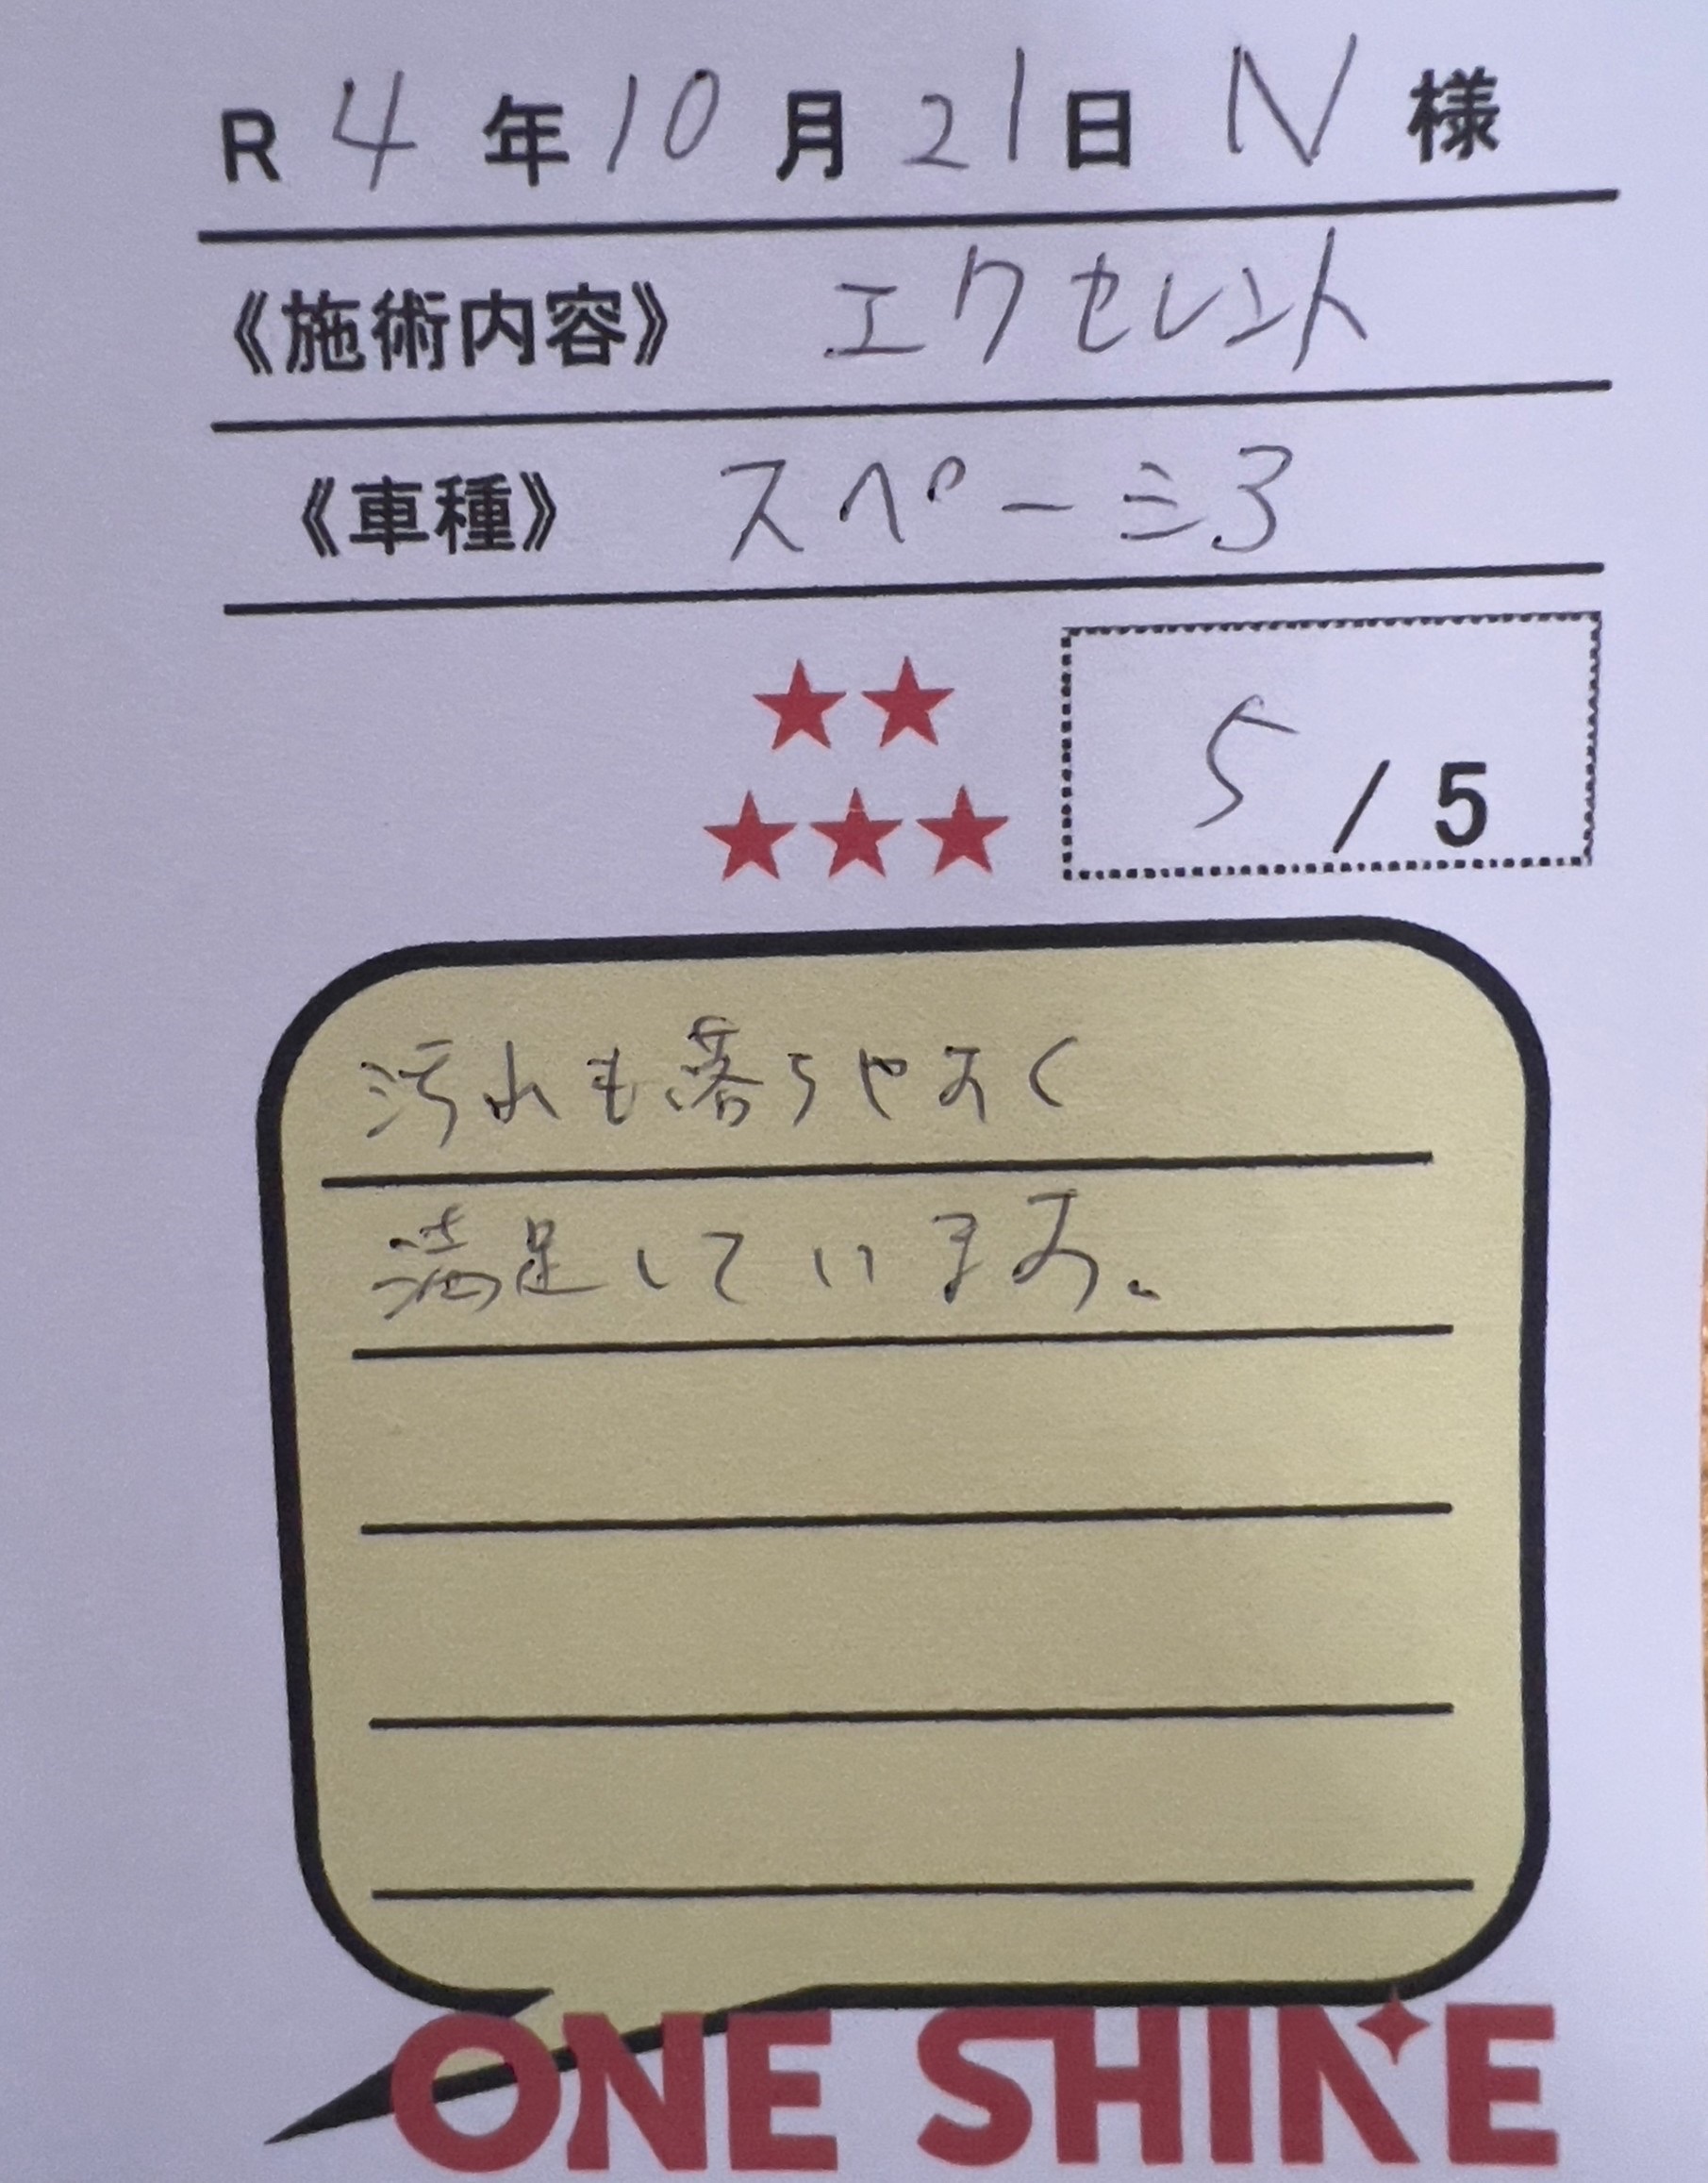 R 4 年 10 月 21 日 N 様
《施術内容》 エクセレント
《車種》 スペーシア
★★
★★★
5 / 5
汚れも落ちやすく
満足しています。
ONE SHINE